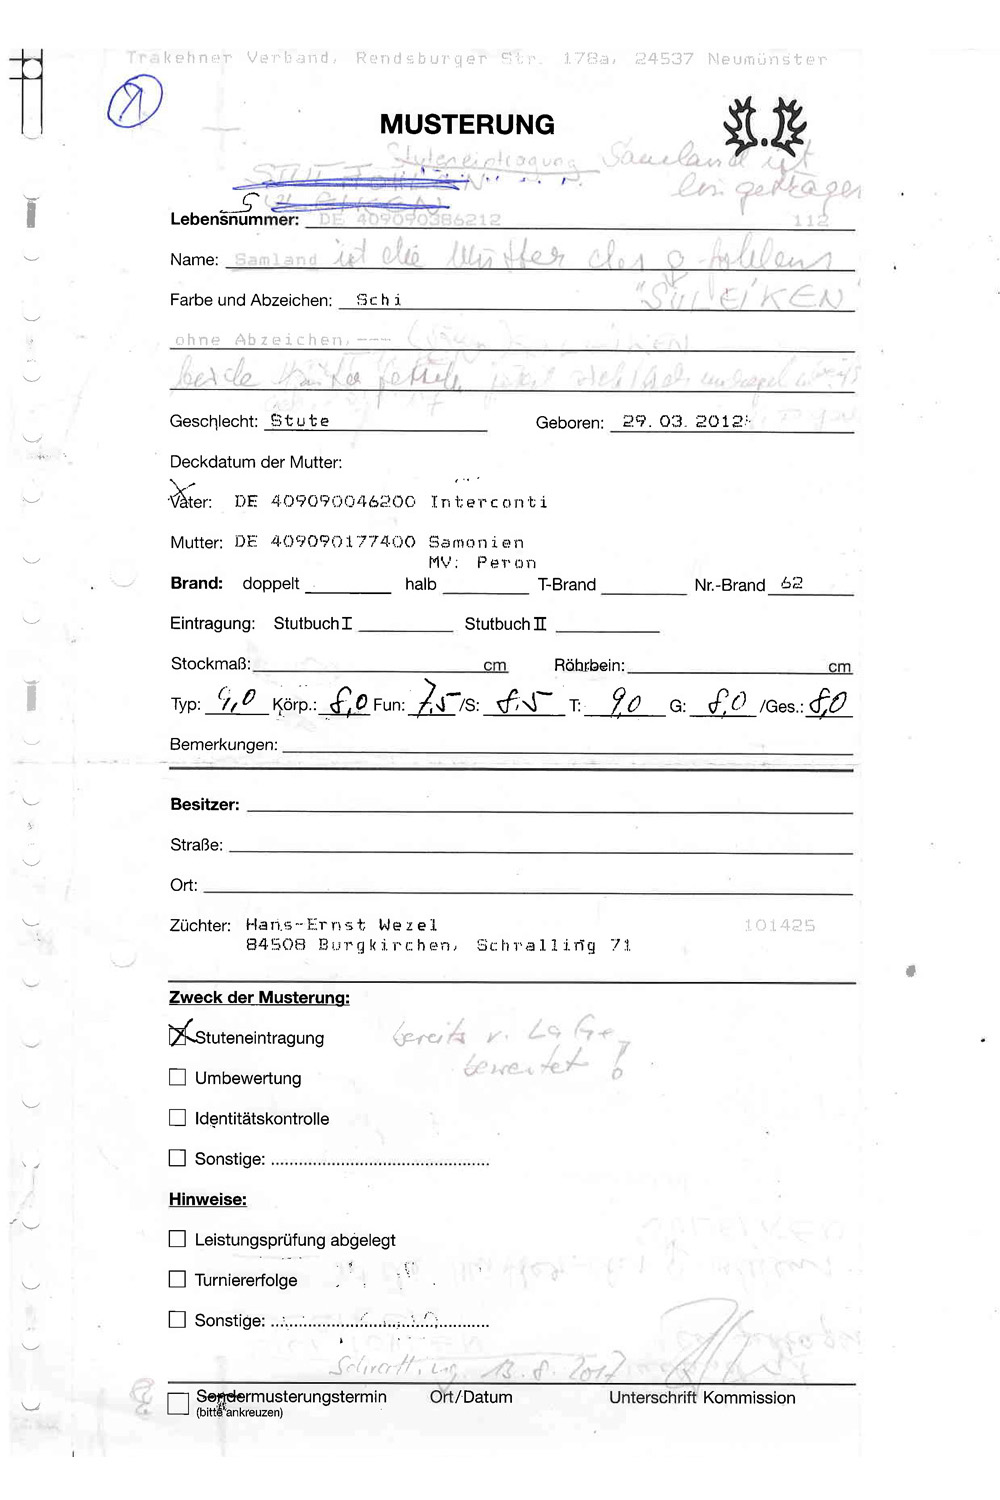 Trakehner Verband, Rendsburger Str. 178a, 24537 Neumünster
MUSTERUNG
Stuteneintragung Samland ist
eingetragen
Lebensnummer: DE 409090386212 112
Name: Samland ist die Mutter des Fohlens
Farbe und Abzeichen: Schi "SULEIKEN"
ohne Abzeichen.---
beide
Geschlecht: Stute Geboren: 29.03.2012
Deckdatum der Mutter:
Vater: DE 409090046200 Interconti
Mutter: DE 409090177400 Samonien
MV: Peron
Brand: doppelt halb T-Brand Nr.-Brand 62
Eintragung: Stutbuch I Stutbuch II
Stockmaß: cm Röhrbein: cm
Typ: 9,0 Körp.: 8,0 Fun: 7,5 /S: 8.5 T: 9,0 G: 8,0 /Ges.: 8,0
Bemerkungen:
Besitzer:
Straße:
Ort:
Züchter: Hans-Ernst Wezel 101425
84508 Burgkirchen, Schralling 71
Zweck der Musterung:
Stuteneintragung bereits v. LaGe
bewertet !
Umbewertung
Identitätskontrolle
Sonstige: ..........................................
Hinweise:
Leistungsprüfung abgelegt
Turniererfolge
Sonstige: ..........................................
Schralling, 13.8.2017
Sondermusterungstermin Ort/Datum Unterschrift Kommission
(bitte ankreuzen)